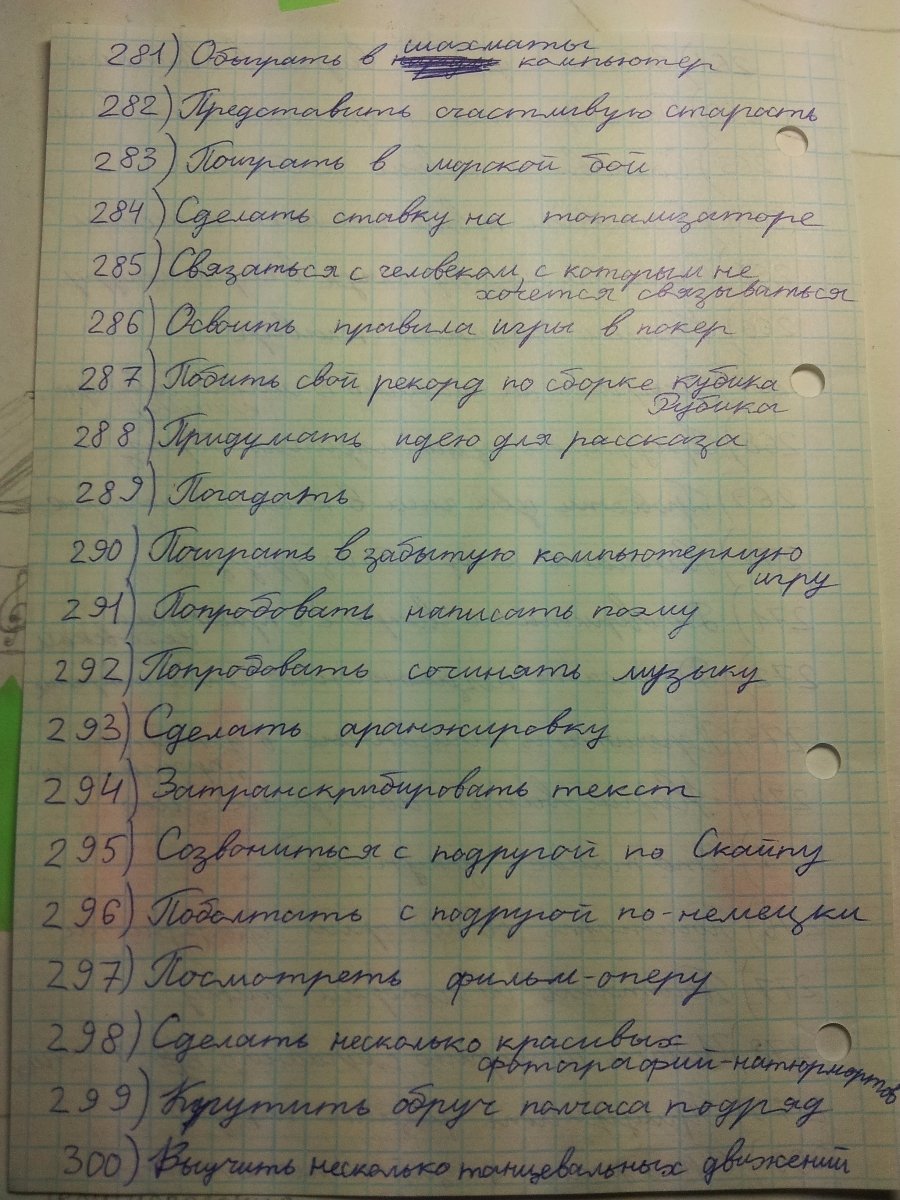 281) Обыграть в шахматы компьютер
282) Представить счастливую старость
283) Поиграть в морской бой
284) Сделать ставку на тотализаторе
285) Связаться с человеком, с которым не
хочется связываться
286) Освоить правила игры в покер
287) Побить свой рекорд по сборке кубика
Рубика
288) Придумать идею для рассказа
289) Погадать
290) Поиграть в забытую компьютерную
игру
291) Попробовать написать поэму
292) Попробовать сочинять музыку
293) Сделать аранжировку
294) Затранскрибировать текст
295) Созвониться с подругой по Скайпу
296) Поболтать с подругой по-немецки
297) Посмотреть фильм-оперу
298) Сделать несколько красивых
фотографий-натюрмортов
299) Крутить обруч полчаса подряд
300) Выучить несколько танцевальных движений